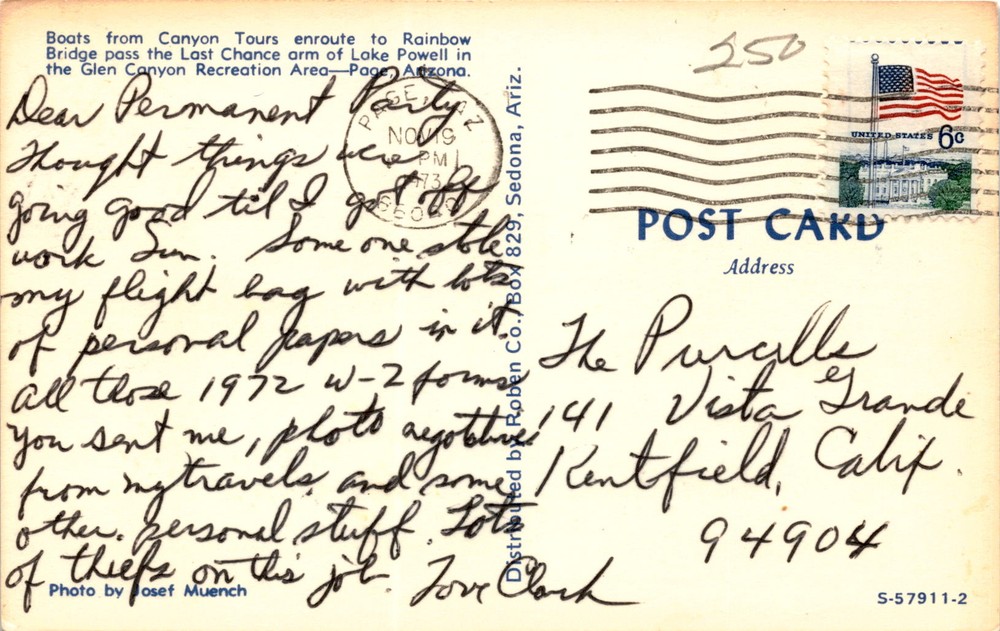 Boats from Canyon Tours enroute to Rainbow
Bridge pass the Last Chance arm of Lake Powell in
the Glen Canyon Recreation Area—Page, Arizona.
Dear Permanent Party,
Thought things were
going good til I got off
work Sun. Some one stole
my flight bag with lots
of personal papers in it.
All those 1972 W-2 forms
you sent me, photo negatives
from my travels, and some
other personal stuff. Lots
of thiefs on this job. Love Clark
Photo by Josef Muench
Distributed by Roben Co., Box 829, Sedona, Ariz.
250
PAGE AZ
NOV 19
PM
1973
86040
UNITED STATES 6c
POST CARD
Address
The Purcells
141 Vista Grande
Kentfield, Calif.
94904
S-57911-2